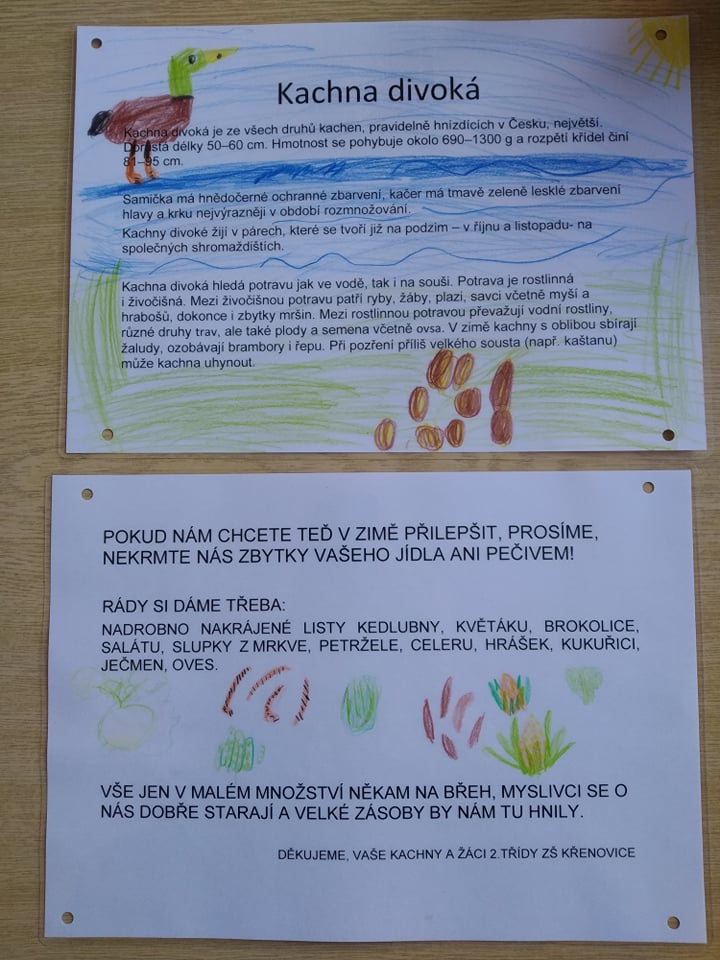 Kachna divoká
Kachna divoká je ze všech druhů kachen, pravidelně hnízdících v Česku, největší.
Dorůstá délky 50–60 cm. Hmotnost se pohybuje okolo 690–1300 g a rozpětí křídel činí
81–95 cm.
Samička má hnědočerné ochranné zbarvení, kačer má tmavě zeleně lesklé zbarvení
hlavy a krku nejvýrazněji v období rozmnožování.
Kachny divoké žijí v párech, které se tvoří již na podzim – v říjnu a listopadu- na
společných shromaždištích.
Kachna divoká hledá potravu jak ve vodě, tak i na souši. Potrava je rostlinná
i živočišná. Mezi živočišnou potravu patří ryby, žáby, plazi, savci včetně myší a
hrabošů, dokonce i zbytky mršin. Mezi rostlinnou potravou převažují vodní rostliny,
různé druhy trav, ale také plody a semena včetně ovsa. V zimě kachny s oblibou sbírají
žaludy, ozobávají brambory i řepu. Při pozření příliš velkého sousta (např. kaštanu)
může kachna uhynout.
POKUD NÁM CHCETE TEĎ V ZIMĚ PŘILEPŠIT, PROSÍME,
NEKRMTE NÁS ZBYTKY VAŠEHO JÍDLA ANI PEČIVEM!
RÁDY SI DÁME TŘEBA:
NADROBNO NAKRÁJENÉ LISTY KEDLUBNY, KVĚTÁKU, BROKOLICE,
SALÁTU, SLUPKY Z MRKVE, PETRŽELE, CELERU, HRÁŠEK, KUKUŘICI,
JEČMEN, OVES.
VŠE JEN V MALÉM MNOŽSTVÍ NĚKAM NA BŘEH, MYSLIVCI SE O
NÁS DOBŘE STARAJÍ A VELKÉ ZÁSOBY BY NÁM TU HNILY.
DĚKUJEME, VAŠE KACHNY A ŽÁCI 2.TŘÍDY ZŠ KŘENOVICE